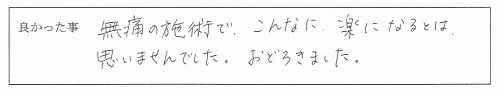 良かった事 無痛の施術で、こんなに、楽になるとは、
思いませんでした。おどろきました。